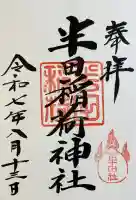 奉拝
半田稲荷神社
令和七年八月十三日